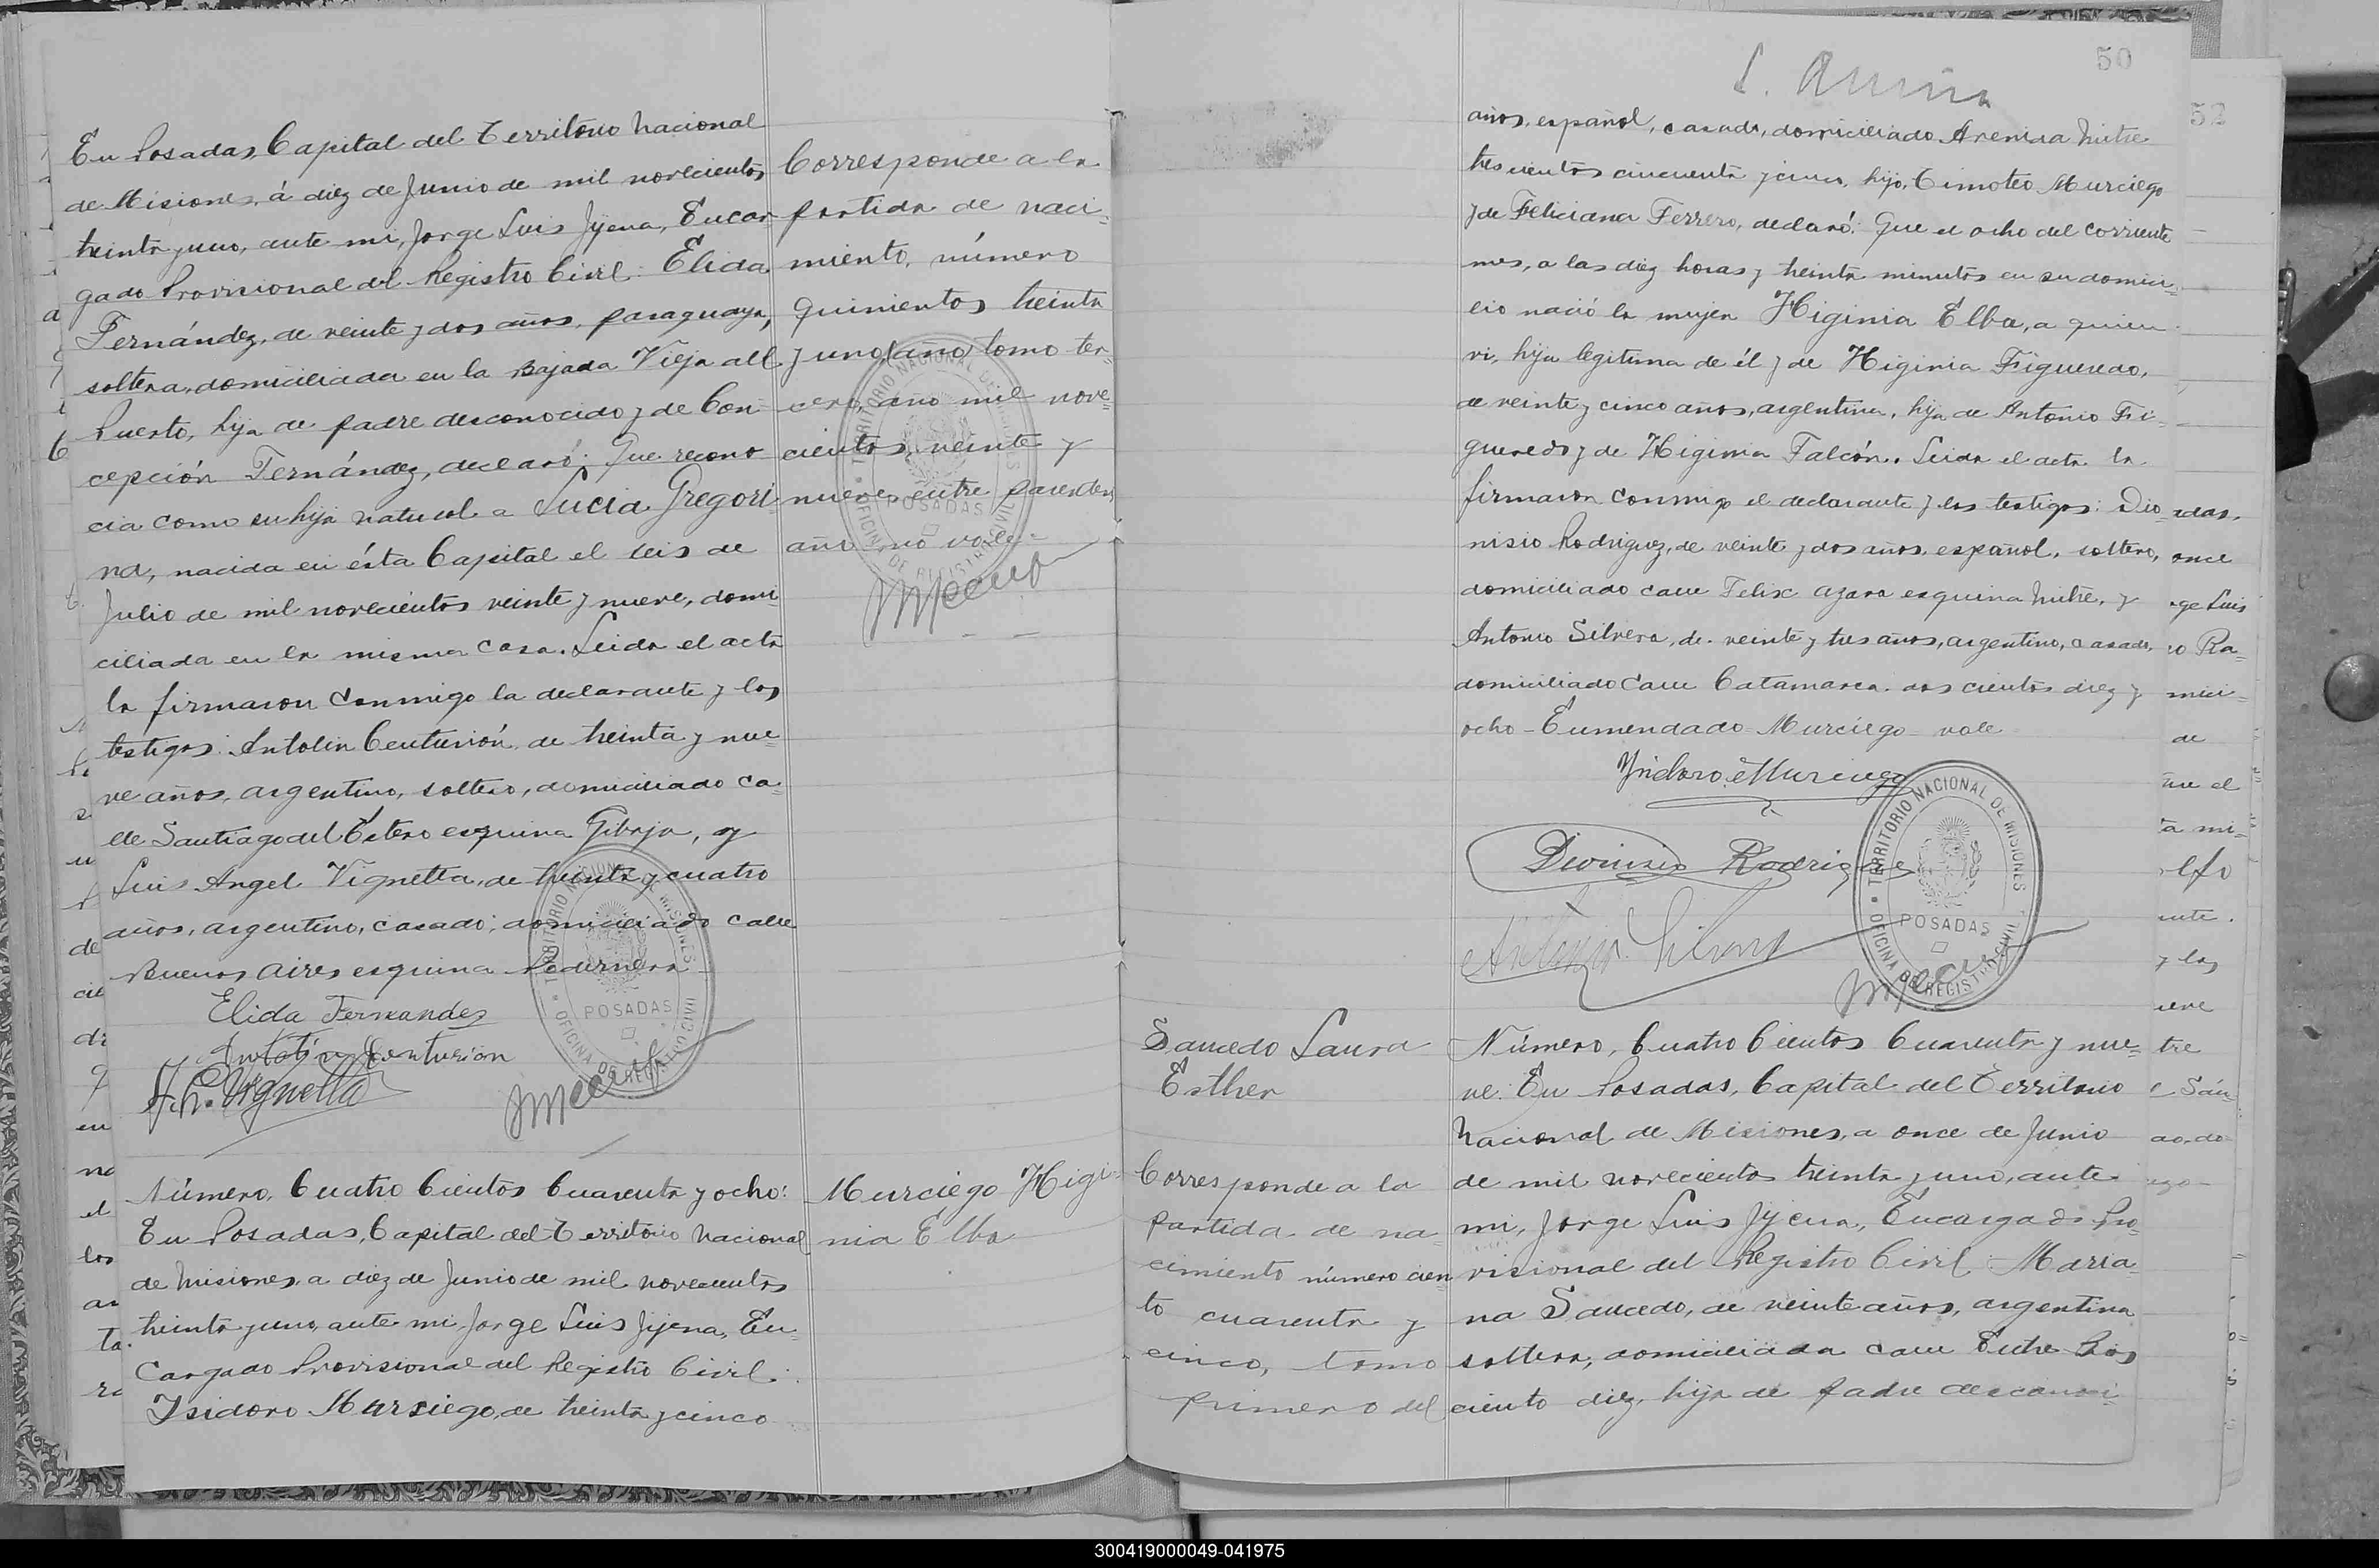 En Posadas, Capital del Territorio Nacional
de Misiones, á diez de Junio de mil novecientos
treinta y uno, ante mi, Jorge Luis Jijena, Encar-
gado Provisional del Registro Civil: Elida
Fernández, de veinte y dos años, paraguaya,
soltera, domiciliada en la Bajada Vieja al
Puerto, hija de padre desconocido y de Con-
cepción Fernández, declaró: Que recono-
cia como su hija natural a Lucia Gregori-
na, nacida en ésta Capital el seis de
Julio de mil novecientos veinte y nueve, domi-
ciliada en la misma casa. Leida el acta
la firmaron conmigo la declarante y los
testigos: Antolin Centurión, de treinta y nue-
ve años, argentino, soltero, domiciliado ca-
lle Santiago del Estero esquina Gibaja, y
Luis Angel Vignetta, de treinta y cuatro
años, argentino, casado; domiciliado calle
Buenos Aires esquina Pedernera
Elida Fernandez
Antolin Centurion
Corresponde a la
partida de naci-
miento, número
quinientos treinta
y uno, (año) tomo ter-
cero, año mil nove-
cientos veinte y
nueve, entre parentesis
año no vale-
TERRITORIO NACIONAL DE MISIONES
POSADAS
OFICINA DE REGISTRO CIVIL
Número, Cuatro Cientos Cuarenta y ocho:
En Posadas, Capital del Territorio Nacional
de Misiones, a diez de Junio de mil novecientos
treinta y uno, ante mi, Jorge Luis Jijena, En-
cargado Provisional del Registro Civil:
Isidoro Murciego, de treinta y cinco
Murciego Higi-
nia Elba
50
años, español, casado, domiciliado Avenida Mitre
tres cientos cincuenta y cinco, hijo, Timoteo Murciego
y de Feliciana Ferrero, declaró: Que el ocho del corriente
mes, a las diez horas y treinta minutos en su domici-
lio nació la mujer Higinia Elba, a quien
vi, hija legitima de él y de Higinia Figueredo,
de veinte y cinco años, argentina, hija de Antonio Fi-
gueredo y de Higinia Falcón. Leida el acta la
firmaron conmigo el declarante y los testigos: Dio-
nisio Rodriguez, de veinte y dos años, español, soltero,
domiciliado calle Felix Azara esquina Mitre, y
Antonio Silvera, de veinte y tres años, argentino, casado,
domiciliado calle Catamarca dos cientos diez y
ocho - Enmendado - Murciego - vale
Ysidoro Murciego
Dionisio Rodriguez
Antonio Silvera
TERRITORIO NACIONAL DE MISIONES
POSADAS
OFICINA DE REGISTRO CIVIL
Saucedo Laura
Esther
Corresponde a la
partida de na-
cimiento número cien-
to cuarenta y
cinco, tomo
primero del
Número, Cuatro Cientos Cuarenta y nue-
ve: En Posadas, Capital del Territorio
Nacional de Misiones, a once de Junio
de mil novecientos treinta y uno, ante
mi, Jorge Luis Jijena, Encargado Pro-
visional del Registro Civil: Maria-
na Saucedo, de veinte años, argentina
soltera, domiciliada calle Entre Rios
ciento diez, hija de padre desconoci-
52
once
de
y los
300419000049-041975